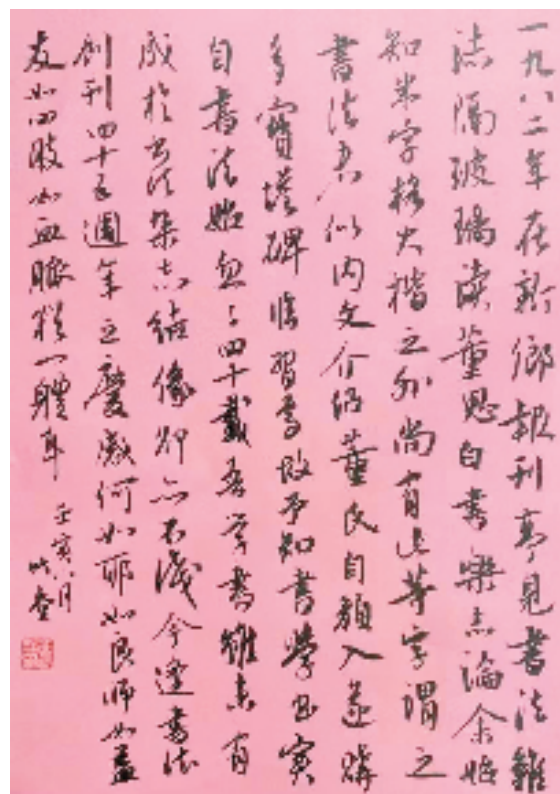 一九八二年在新鄉報刊亭見書法雜
誌隔玻璃读董思白書樂志論余始
知米字格大楷之外尚有此等字謂之
書法者以内文介绍董氏自顏入遂購
多寶塔碑臨習焉故予知書學書實
自書法始忽々四十載吾學書雖未有
成於書法集志結缘卻亦不淺今逢書法
創刊四十五週年之慶感何如耶如良師如益
友如四肢如血脈於一體耳 壬寅八月